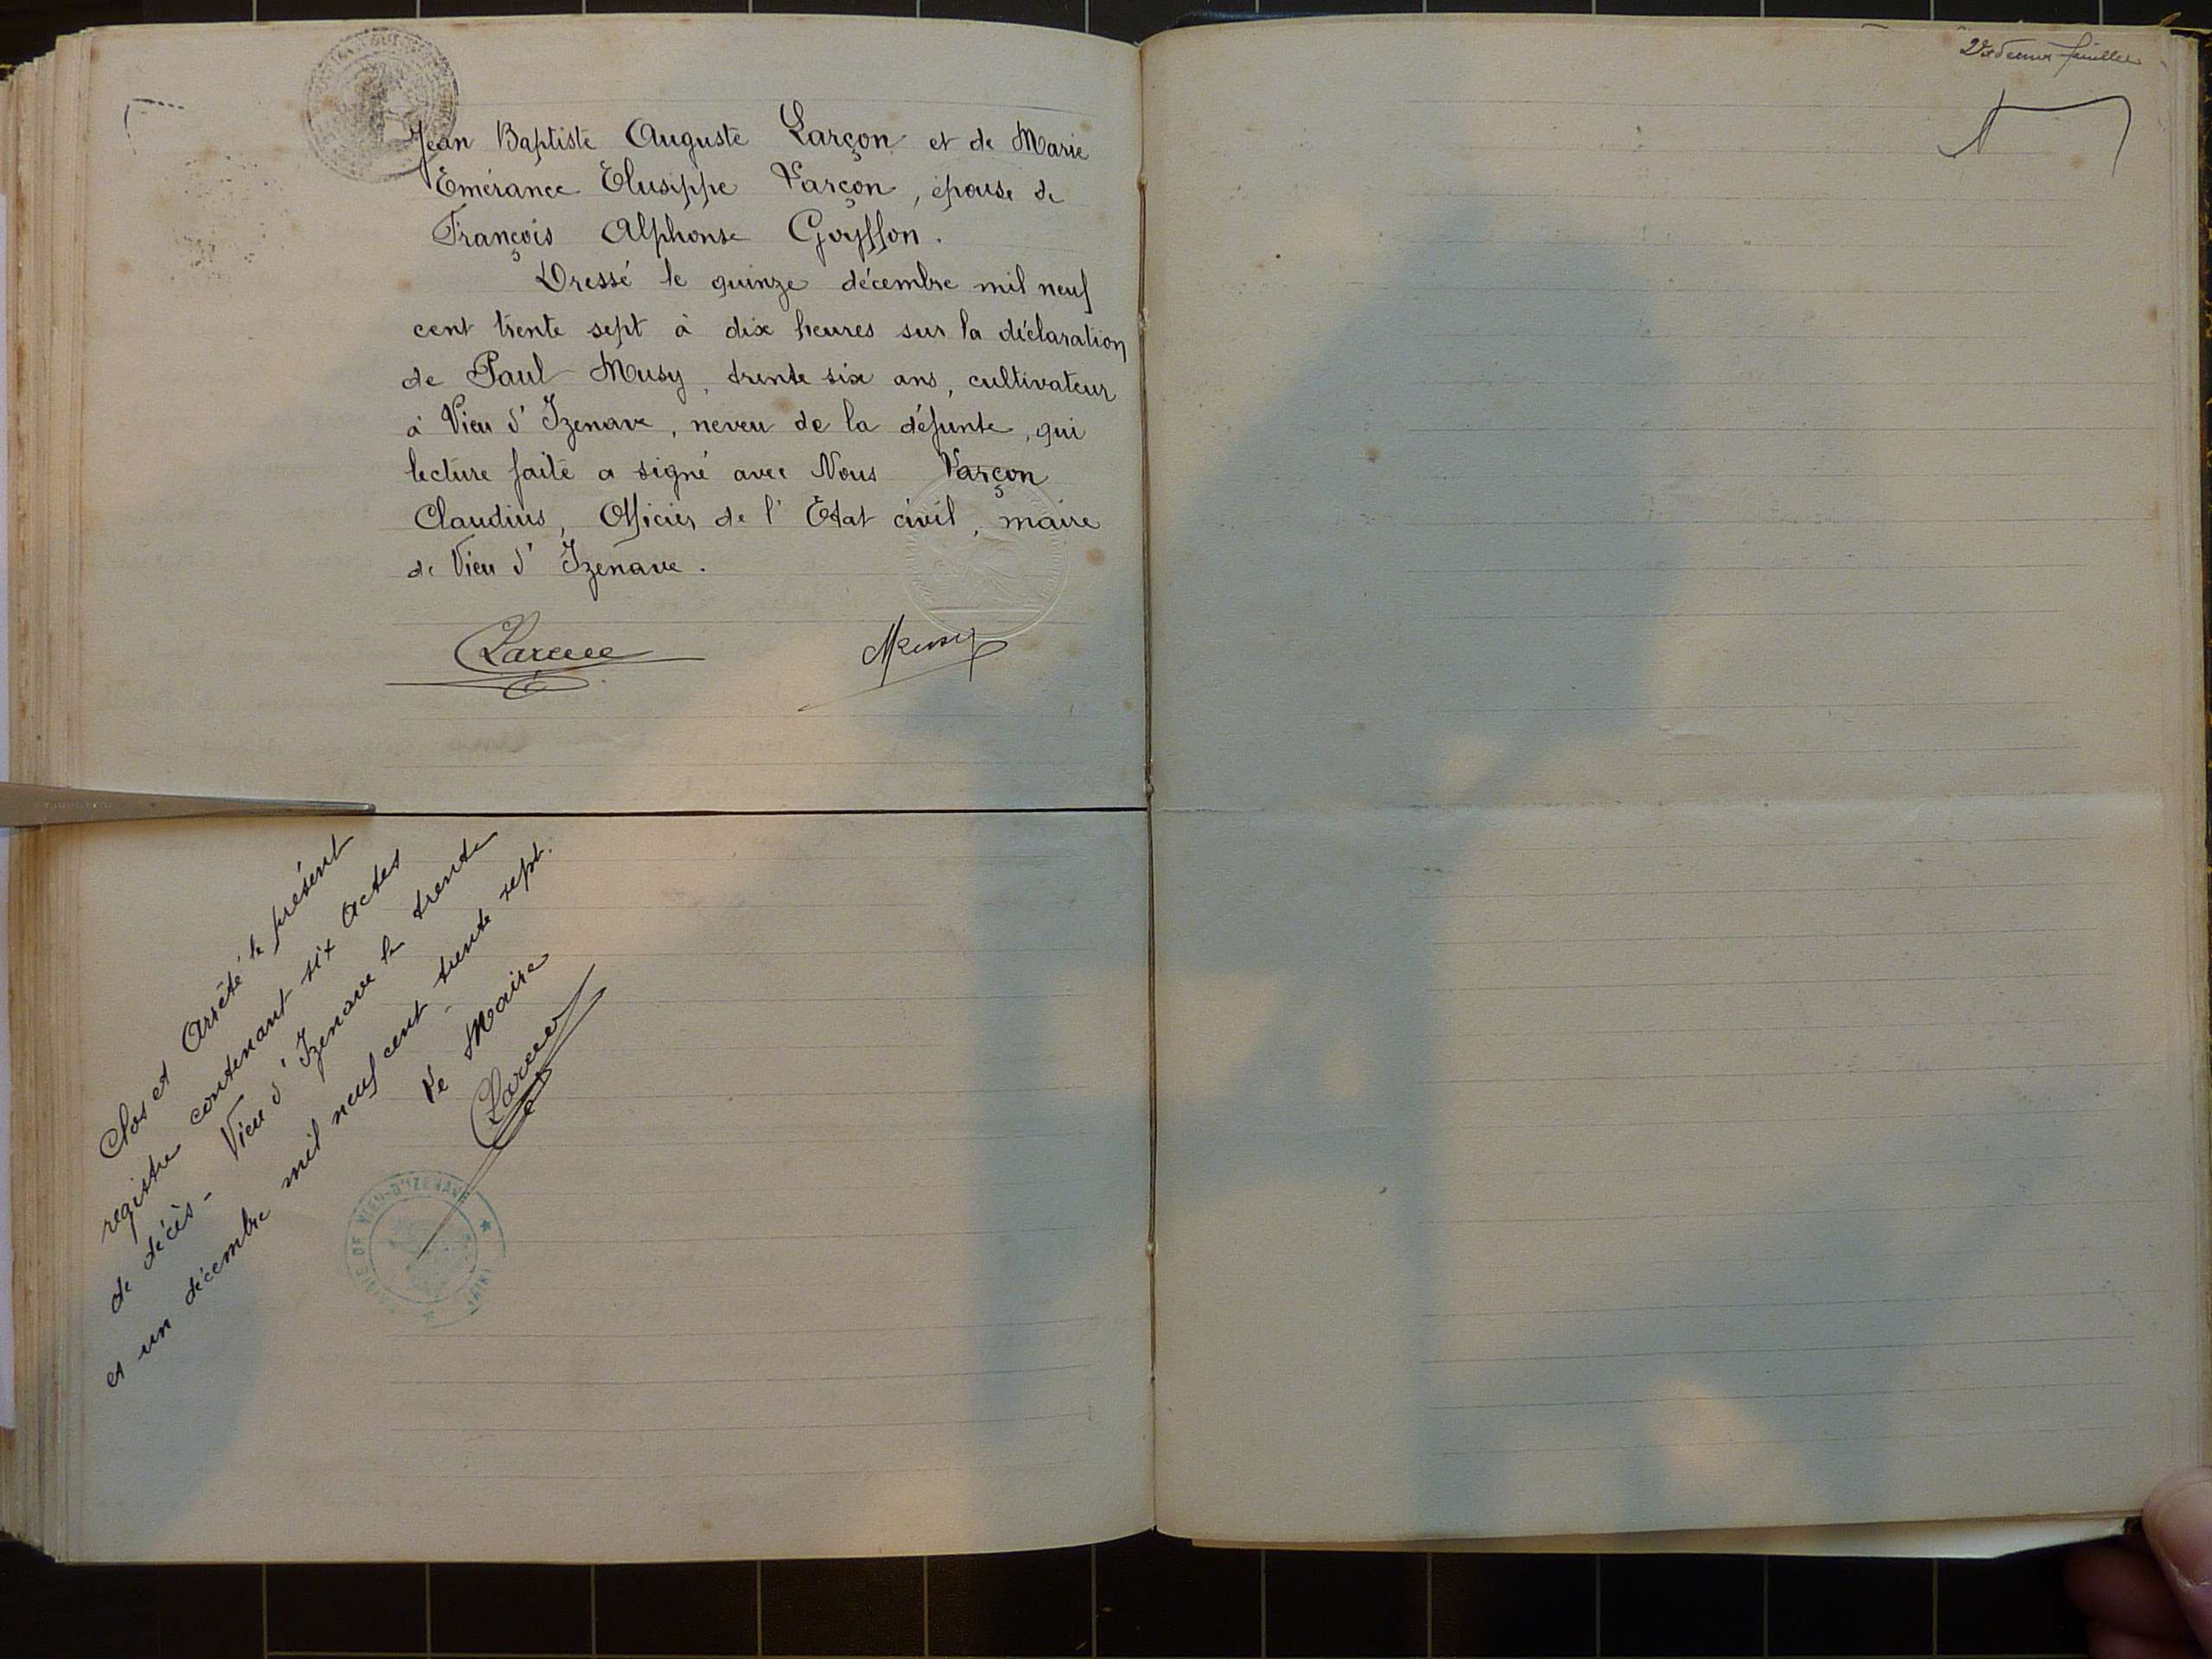 Jean Baptiste Auguste Larçon et de Marie
Emérance Elusippe Larçon, épouse de
François Alphonse Goyffon.
Dressé le quinze décembre mil neuf
cent trente sept à dix heures sur la déclaration
de Paul Musy, trente six ans, cultivateur
à Vieu d'Izenave, neveu de la défunte, qui
lecture faite a signé avec Nous Larçon
Claudius, Officier de l'Etat civil, maire
de Vieu d'Izenave.
Musy
Clos et Arrêté le présent
registre contenant six actes
de décès - Vieu d'Izenave le trente
et un décembre mil neuf cent trente sept.
Le Maire
MAIRIE DE VIEU-D'IZENAVE ★ (AIN) ★
feuillet